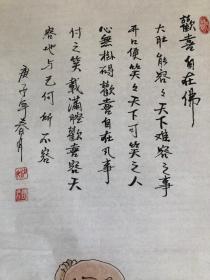 歡喜自在佛
大肚能容々天下難容之事
开口便笑々天下可笑之人
心無掛碍歡喜自在凡事
付之笑載滿腔歡喜容天
容地与己何所不容
庚子年春月